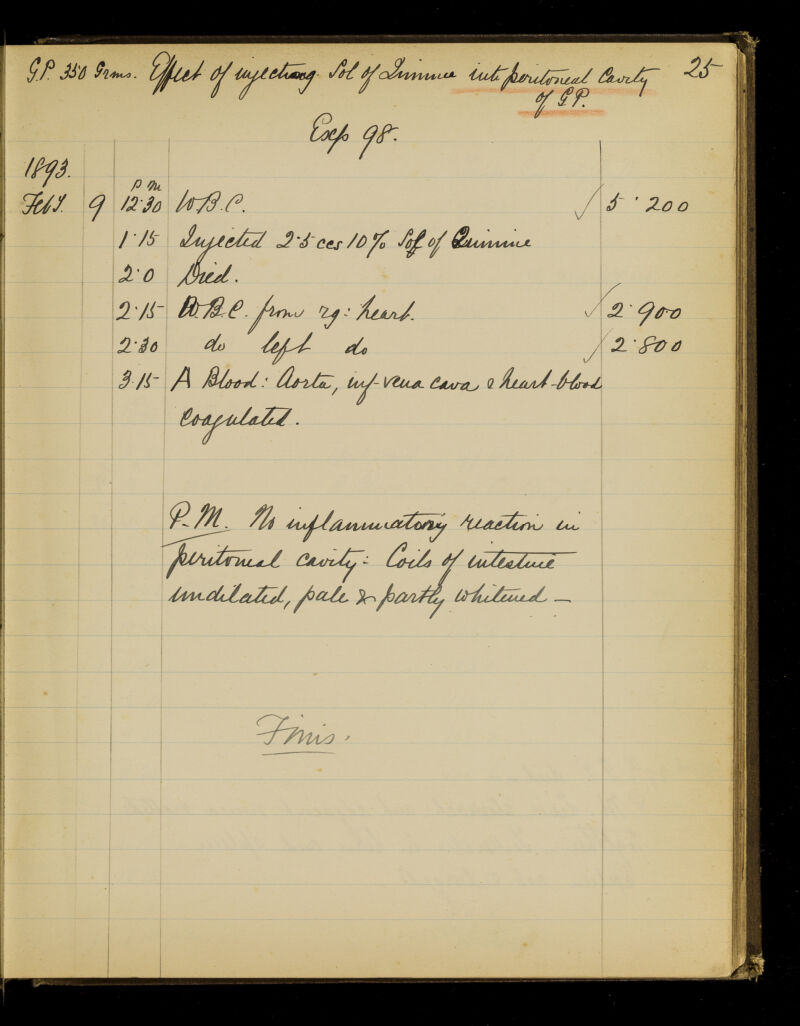 G.P. 350 Grms. Effect of injecting Sol of Quinine into peritoneal Cavity 25
of G.P.
Exp 98.
1893.
P M
Feby. 9 12.30 W.B.C. √ 5.200
1.15 Injected 2.5 ccs 10% Sol of Quinine
2.0 Died.
2.15 W.B.C. from rg: heart. √ 2.900
2.30 do left do √ 2.800
3.15 A Blood: Aorta, inf-vena cava & heart-blood
coagulated.
P.M. No inflammatory reaction in
peritoneal cavity: Coils of intestine
undilated, pale & partly whitened —
Finis.